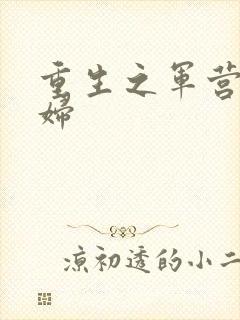 重生之军营
妇
凉初透的小二